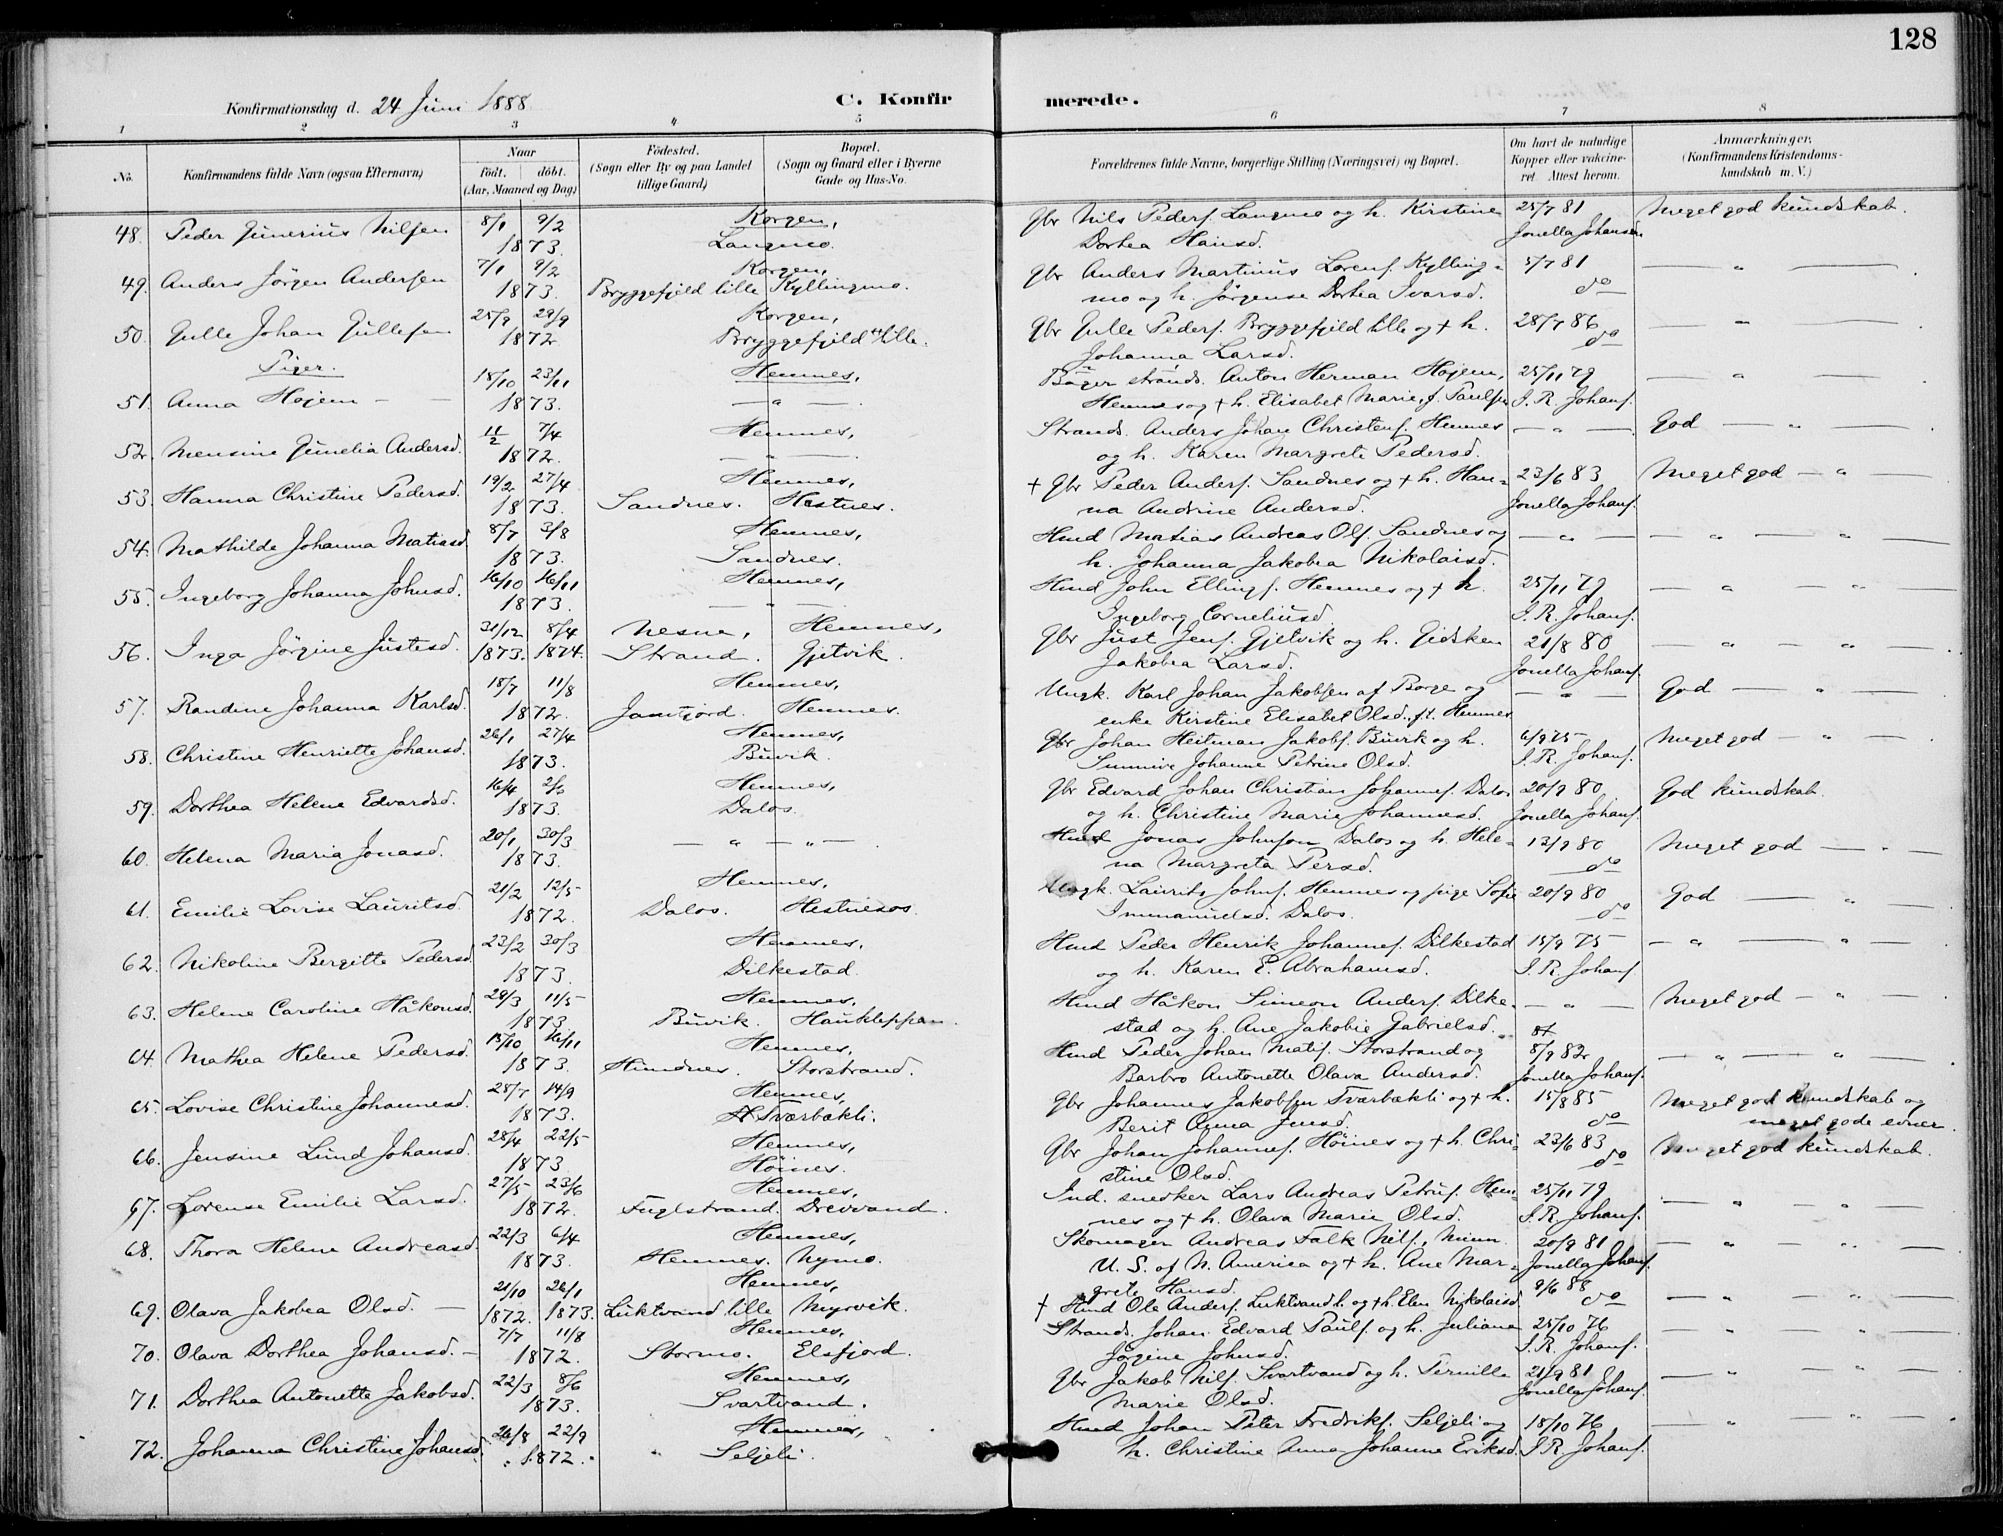 128
Konfirmationsdag d. 24 Juni 1888
C. Konfirmerede.
1 2 3 4 5 6 7 8
No. Konfirmandens fulde Navn (ogsaa Efternavn) Naar Födt. döbt. (Aar, Maaned og Dag) Födested. (Sogn eller By og paa Landet tillige Gaard) Bopæl. (Sogn og Gaard eller i Byerne Gade og Hus-No. Forældrenes fulde Navne, borgerlige Stilling (Næringsvei) og Bopæl. Om havt de naturlige Kopper eller vakcineret. Attest herom. Anmærkninger. (Konfirmandens Kristendomskundskab m. V.)
48. Peder Junerius Nilsen 8/1 9/2 Korgen, Gbr Nils Peders. Langmo og h. Kirstine 25/7 81 Meget god kundskab.
1873. Langmo. Dorhea Hansd. Jonella Johansen
49. Anders Jörgen Andersen 7/1 9/2 Korgen, Gbr Anders Martinus Lorens. Kylling- 5/7 81 — " —
1873. Bryggefjeld lille Kyllingmo. mo og h. Jørgense Dorhea Ivarsd. do
50. Gulle Johan Gullesen 25/9 29/9 Korgen, Gbr Gulle Peders. Bryggefjeld lille og + h. 28/7 86 — " —
1872 Bryggefjeld lille. Johanna Larsd. do
Piger.
51. Anna Højem — — 18/10 23/11 Hemnes, Bøger strands. Anton Herman Højem, 25/11 79 — " —
1873. — " — Hemnes og + h. Elisabet Marie, f. Paulsen I. R. Johans.
52. Mensine Jumelia Andersd. 11/2 7/4 Hemnes, Strands. Anders Johan Christens. Hemnes — " — God — " —
1872. — " — og h. Karen Margrete Pedersd.
53. Hanna Christine Pedersd. 19/2 27/4 Hemnes, + Gbr Peder Anders. Sandnes og + h. Han- 23/6 83 Meget god — " —
1873. Sandnes. Hestnes. na Andrine Andersd. Jonella Johans.
54. Mathilde Johanna Matiasd. 8/7 3/8 Hemnes, Hmd Matias Andreas Ols. Sandnes og — " — — " — " —
1873. Sandnes. h. Johanna Jakobea Nikolaisd.
55. Ingeborg Johanna Johnsd. 16/10 16/11 Hemnes, Hmd John Ellings. Hemnes og + h. 25/11 79 — " — " —
1873. — " — Ingeborg Corneliusd. I. R. Johans.
56. Inga Jörgine Justesd. 31/12 8/4 Nesne, Hemnes, Gbr Just Jens. Gjetvik og h. Gidsken 21/8 80 — " — " —
1873. 1874. Strand. Gjetvik. Jakobea Larsd. Jonella Johans.
57. Randine Johanna Karlsd. 18/7 11/8 Hemnes, Ungk. Karl Johan Jakobsen af Borge og — " — God — " —
1872. Jamtjord. Hemnes. enke Kirstine Elisabet Olsd. ft. Hemnes
58. Christine Henriette Johansd. 26/1 27/4 Hemnes, Gbr Johan Heitman Jakobs. Buvik og h. 6/9 75 Meget god — " —
1873. Buvik. Sunnive Johanne Petrine Olsd. I. R. Johans.
59. Dorthea Helene Edvardsd. 16/4 Hemnes, Gbr Edvard Johan Christian Johannes. Dalos 20/9 80 God kundskab.
1873. Dalos. og h. Christine Marie Johannesd. Jonella Johans.
60. Helena Maria Jonasd. 20/1 30/3 — " — " — Hmd Jonas Johnson Dalos og h. Hele- 13/9 80 Meget god — " —
1873. na Margreta Persd. do
61. Emilie Lovise Lauritsd. 21/2 12/5 Hemnes, Ungk. Laurits Johns. Hemnes og pige Sofie 20/9 80 God — " —
1872. Dalos. Hestnesos Immanuelsd. Dalos. do
62. Nikoline Bergitte Pedersd. 23/2 30/3 Hemnes, Hmd Peder Henrik Johannes. Dilkestad 15/9 75 — " — " —
1873. Dilkestad. og h. Karen E. Abrahamsd. I. R. Johans.
63. Helene Caroline Håkonsd. 29/3 11/5 Hemnes, Hmd Håkon Simeon Anders. Dilke- — " — Meget god — " —
1873 Buvik. Haukleppan. stad og h. Ane Jakobie Gabrielsd.
64. Mathea Helene Pedersd. 13/10 16/11 Hemnes, Hmd Peder Johan Matis. Storstrand og 8/9 82 — " — " —
1873. Hundnes. Storstrand. Barbro Antonette Olava Andersd. Jonella Johans.
65. Lovise Christine Johannesd. 28/7 14/9 Hemnes, Gbr Johannes Jakobsen Tværbækli og + h. 15/8 85 Meget god kundskab og
1873. Tværbækli. Berit Jensd. do meget gode evner.
66. Jensine Lund Johansd. 28/4 22/5 Hemnes, Gbr Johan Johannes. Höines og + h. Chri- 23/6 83 Meget god kundskab.
1873 Höines. stine Olsd. do
67. Lorense Emilie Larsd. 27/5 23/6 Hemnes, Ind. snedker Lars Andreas Petrus. Hem- 25/11 79 — " — " —
1872. Fuglstrand. Drevvand. nes og + h. Olava Marie Olsd. I. R. Johans.
68. Thora Helene Andreasd. 22/3 6/4 Hemnes, Skomager Andreas Falk Nils., Minn. 20/9 81 — " — " —
1873. Hemnes. Nymo. U. S. of N. America og + h. Ane Mar- Jonella Johans.
grete Hansd.
69. Olava Jakobea Olsd. — 21/10 26/1 Hemnes, + Hmd Ole Anders. Luktvand l. og + h. Elen Nikolaisd. 9/6 88 do — " — " —
1872. 1873. Luktvand lille Myrvik.
70. Olava Dorthea Johansd. — 7/7 11/8 Hemnes, Strands. Johan Edvard Pauls. og h. Juliane 25/10 76 — " — " —
1872. Stormo. Elsfjord. Jörgine Johnsd. I. R. Johans.
71. Dorthea Antonette Jakobsd. 22/3 8/6 Hemnes, Gbr Jakob Nils. Svartvand og h. Pernille 21/9 81 — " — " —
1873. Svartvand. Marie Olsd. Jonella Johans.
72. Johanna Christine Johansd. 26/8 22/9 Hemnes, Hmd Johan Peter Fredriks. Seljeli og 18/10 76 — " — " —
1872. Seljeli. h. Christine Anna Johanne Eriksd. I. R. Johans.